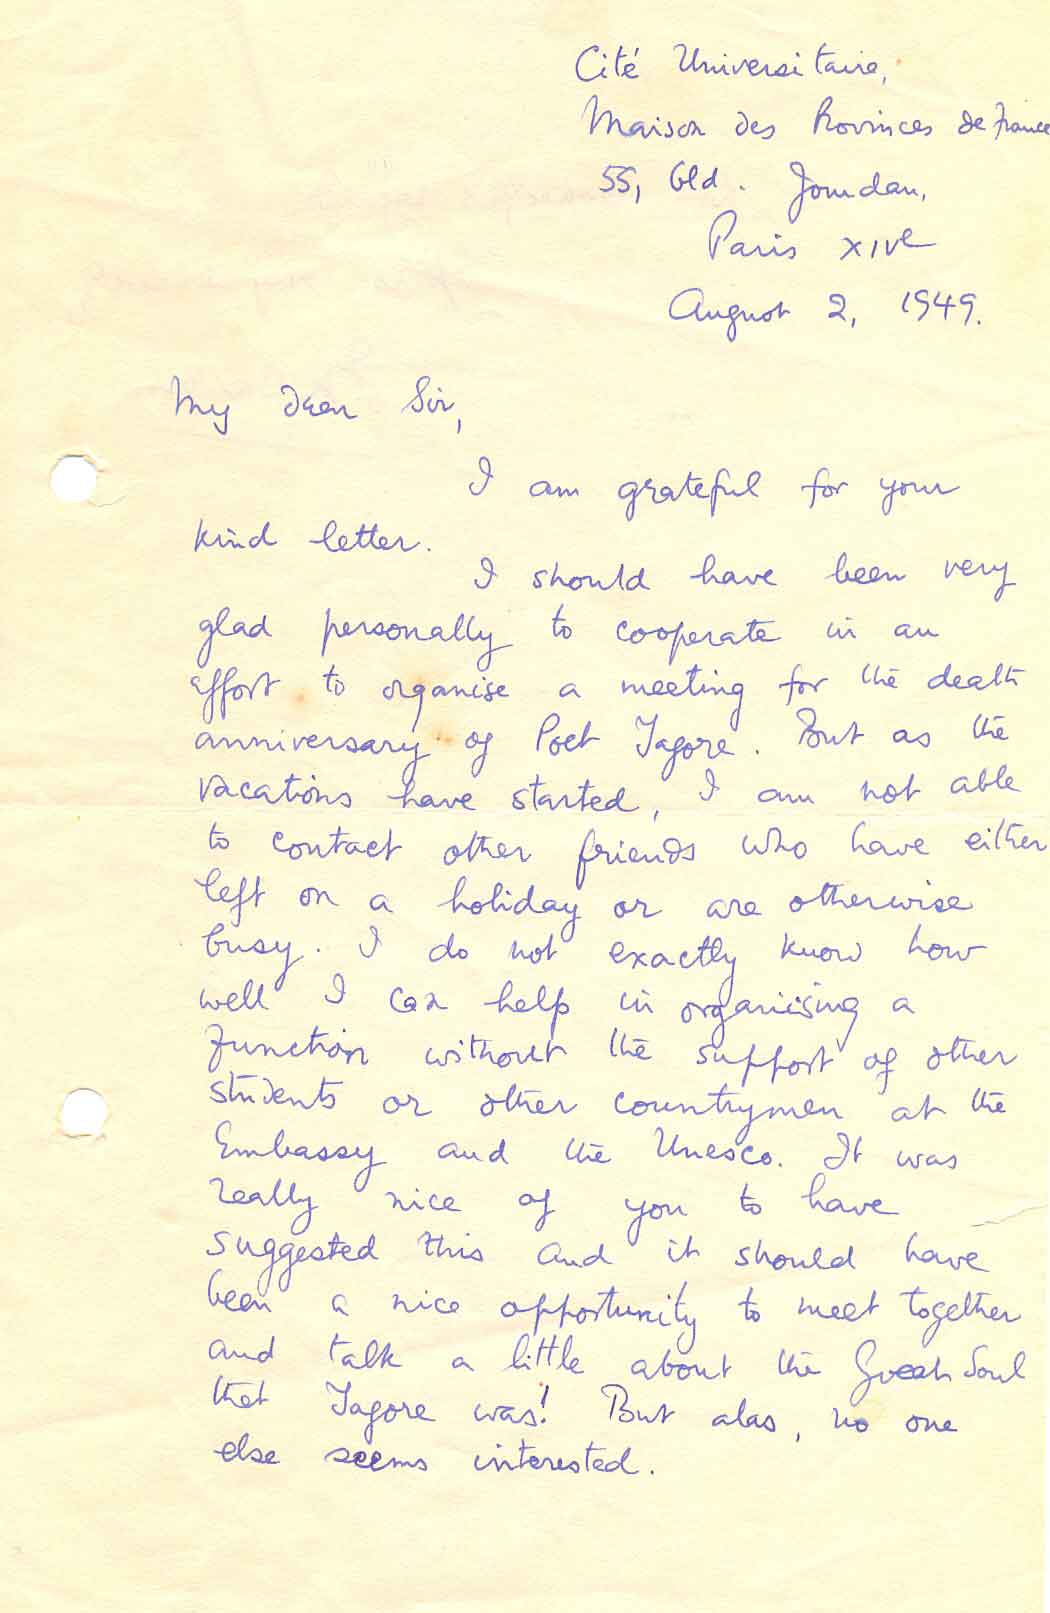 Cité Universitaire,
Maison des Provinces de France
55, Bld. Jourdan,
Paris XIVe
August 2, 1949.
My dear Sir,
I am grateful for your
kind letter.
I should have been very
glad personally to cooperate in an
effort to organise a meeting for the death
anniversary of Poet Tagore. But as the
vacations have started, I am not able
to contact other friends who have either
left on a holiday or are otherwise
busy. I do not exactly know how
well I can help in organising a
function without the support of other
students or other countrymen at the
Embassy and the Unesco. It was
really nice of you to have
suggested this and it should have
been a nice opportunity to meet together
and talk a little about the Great Soul
that Tagore was! But alas, no one
else seems interested.